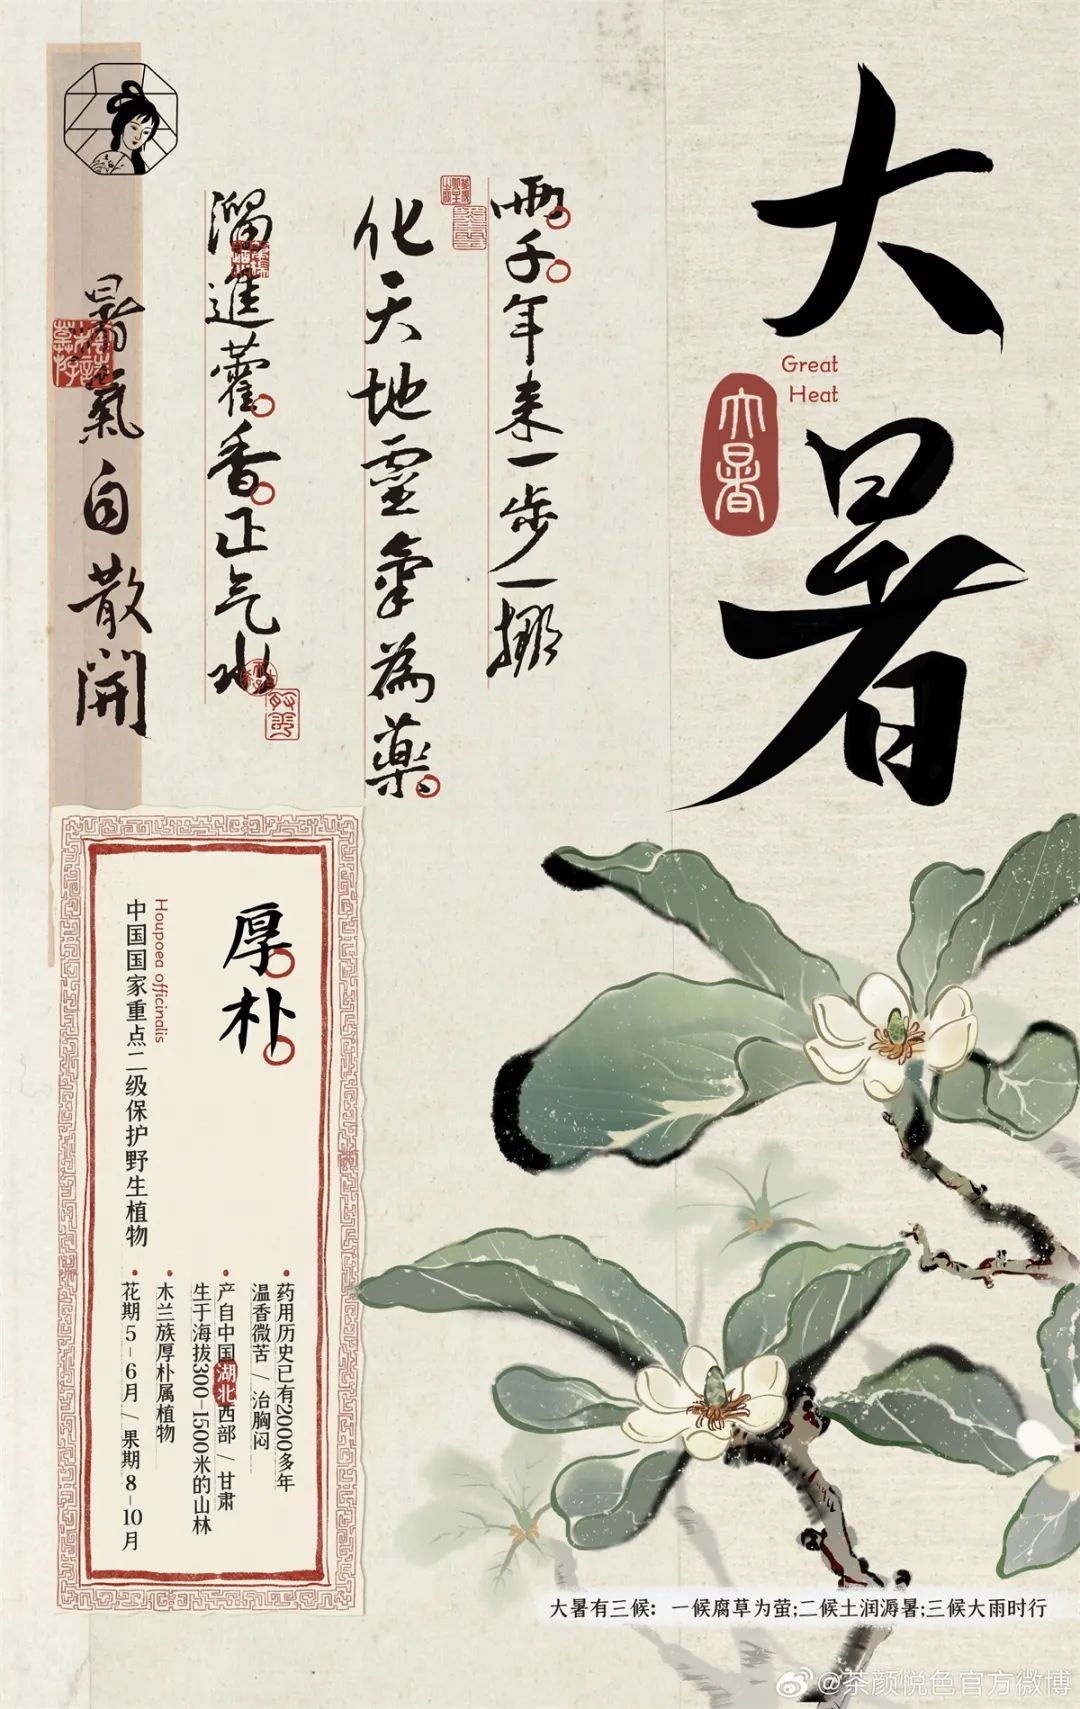 大暑
Great
Heat
大暑
两千年来一步一挪
化天地靈氣為藥
溜進藿香正气水
暑氣自散開
厚朴
Houpoea officinalis
中国国家重点二级保护野生植物
•药用历史已有2000多年
温香微苦 / 治胸闷
•产自中国湖北西部 / 甘肃
生于海拔300-1500米的山林
•木兰族厚朴属植物
•花期5-6月 / 果期8-10月
大暑有三候：一候腐草为萤;二候土润溽暑;三候大雨时行
@茶颜悦色官方微博